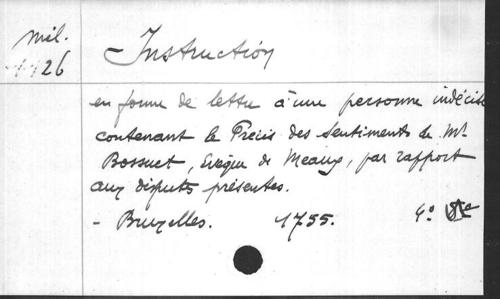 mil.
26
Instruction
en forme de lettre à une personne indécise
contenant le Précis des Sentiments de Mr
Bossuet, Evêque de Meaux, par rapport
aux disputs présentes.
- Bruxelles. 1755. 4o